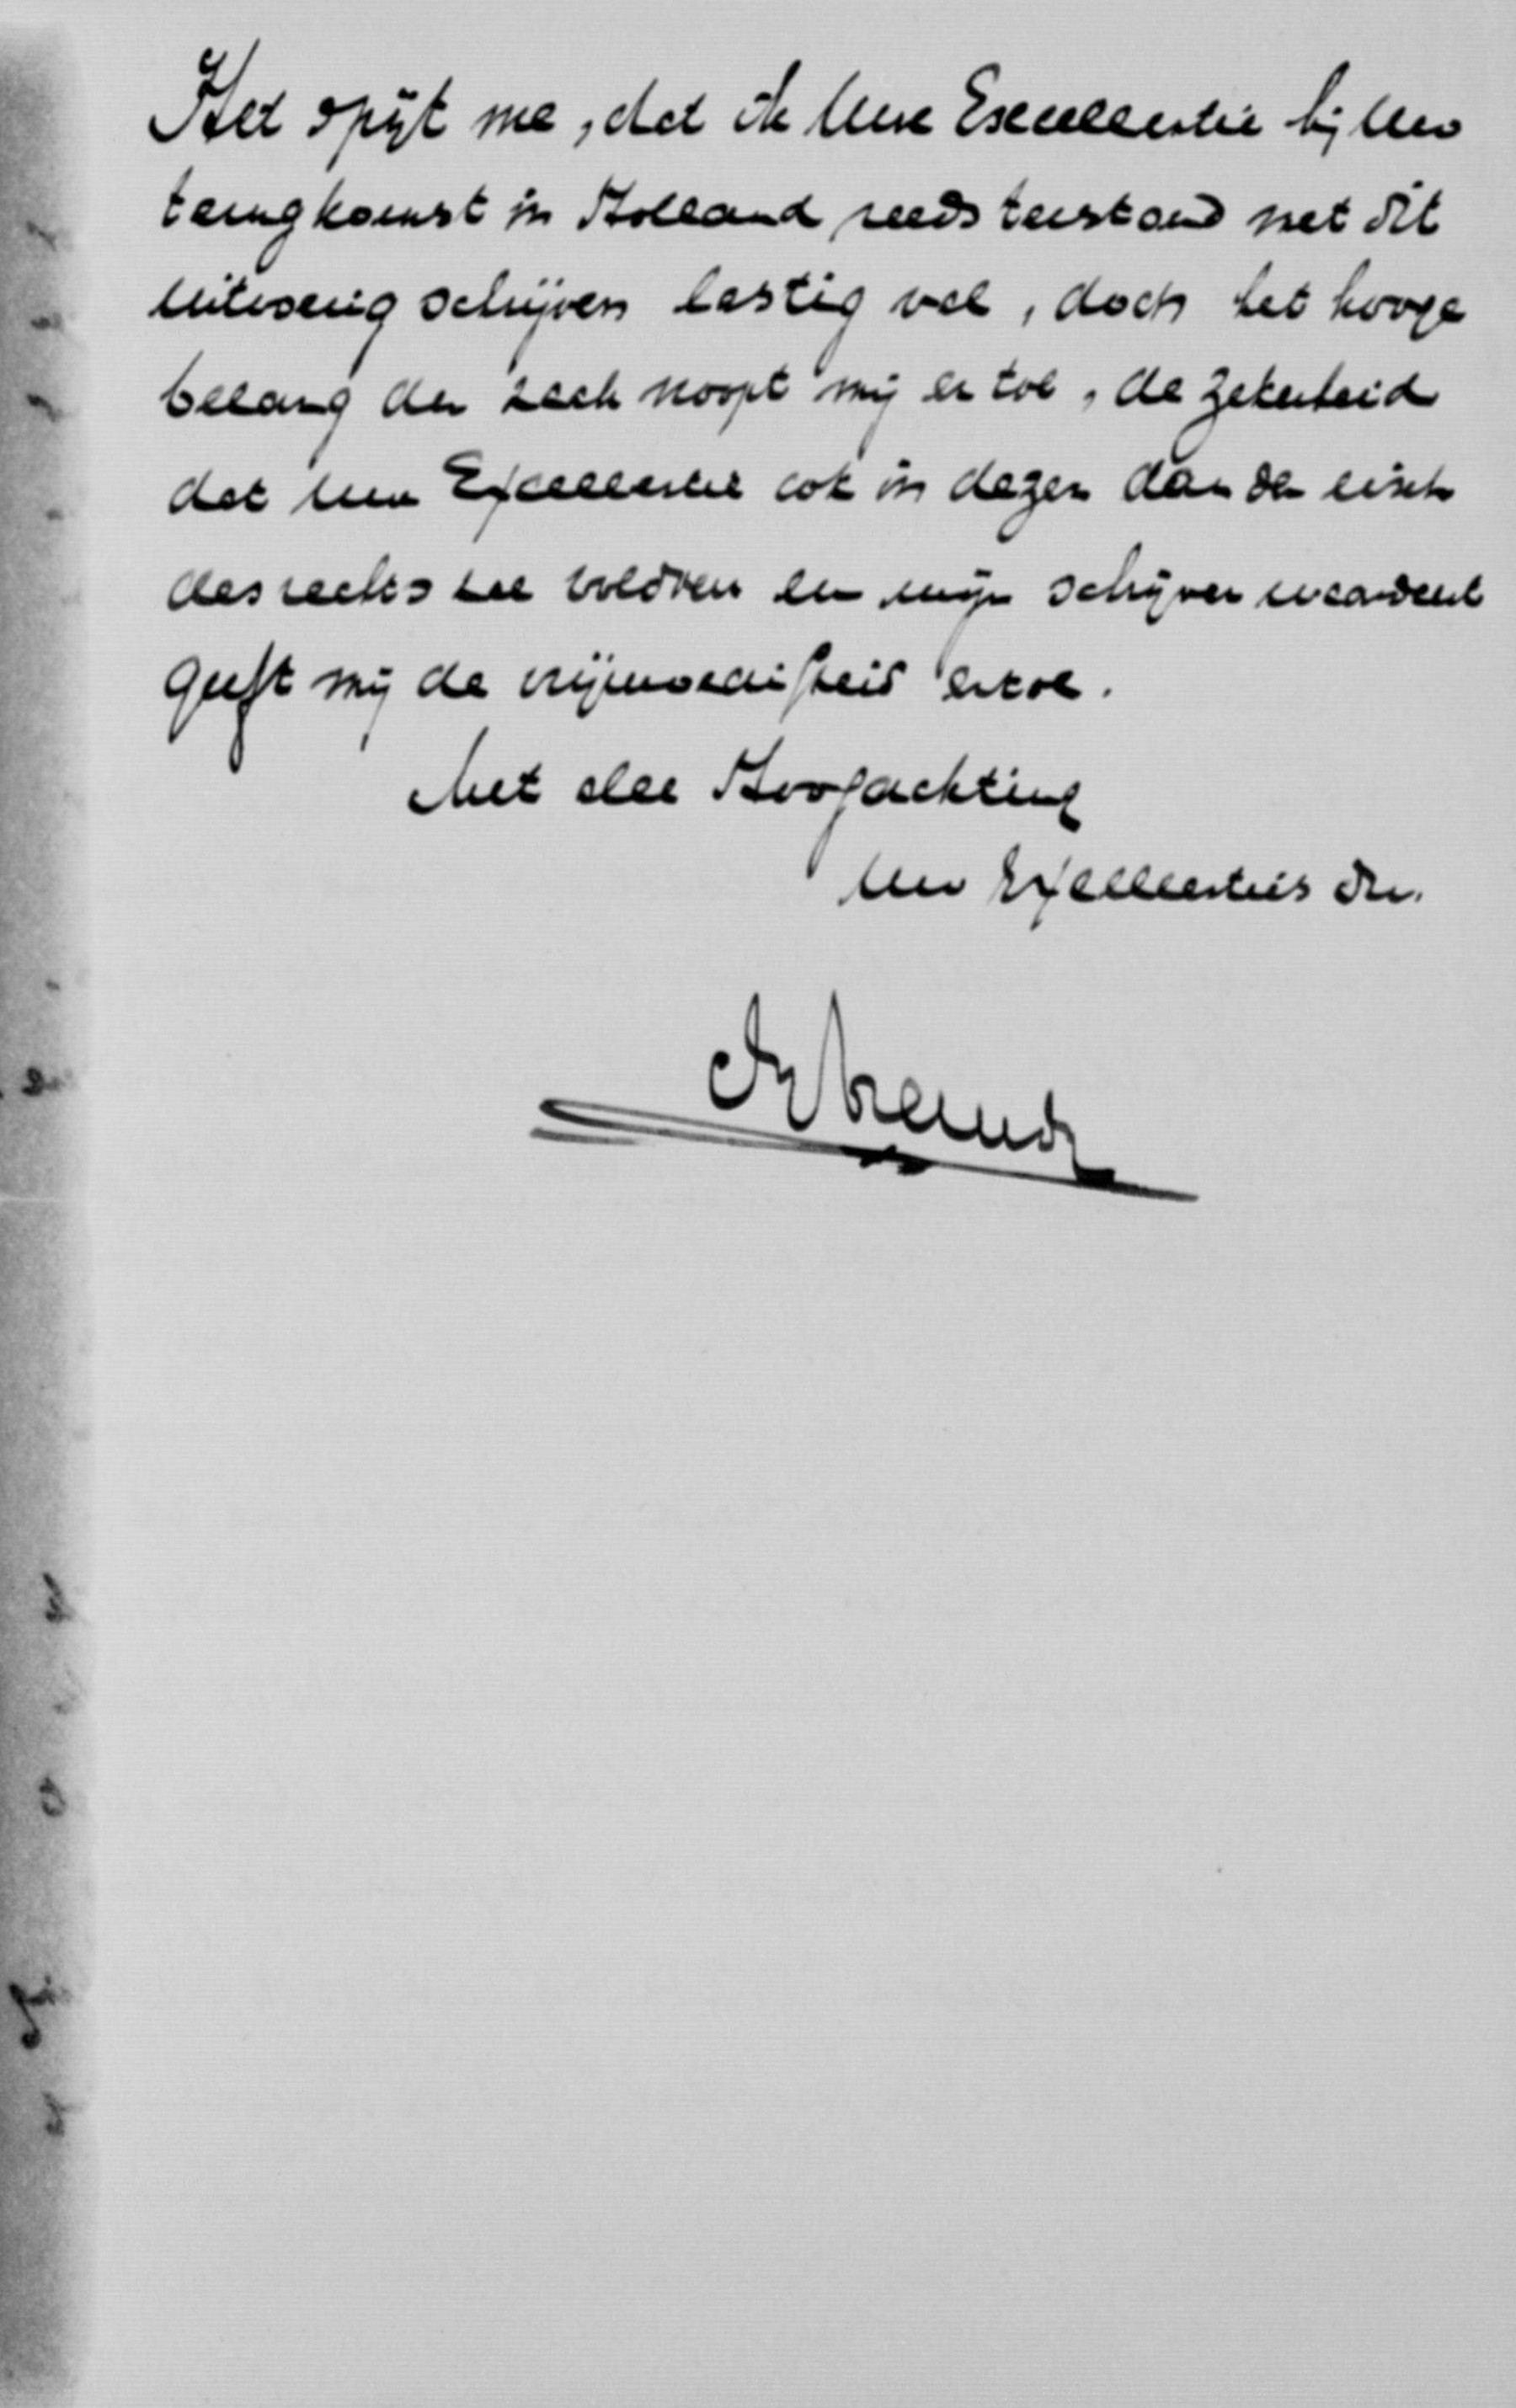 Het spijt me, dat ik Uwe Excellentie bij Uw
terugkomst in Holland reeds terstond met dit
uitvoerig schrijven lastig val, doch het hooge
belang der zaak noopt mij er toe, de zekerheid
dat Uwe Excellentie ook in dezen aan den eisch
des rechts zal voldoen en mijn schrijven waardeert
geeft mij de vrijmoedigheid ertoe.
Met alle Hoogachting
Uw Excellenties dr.